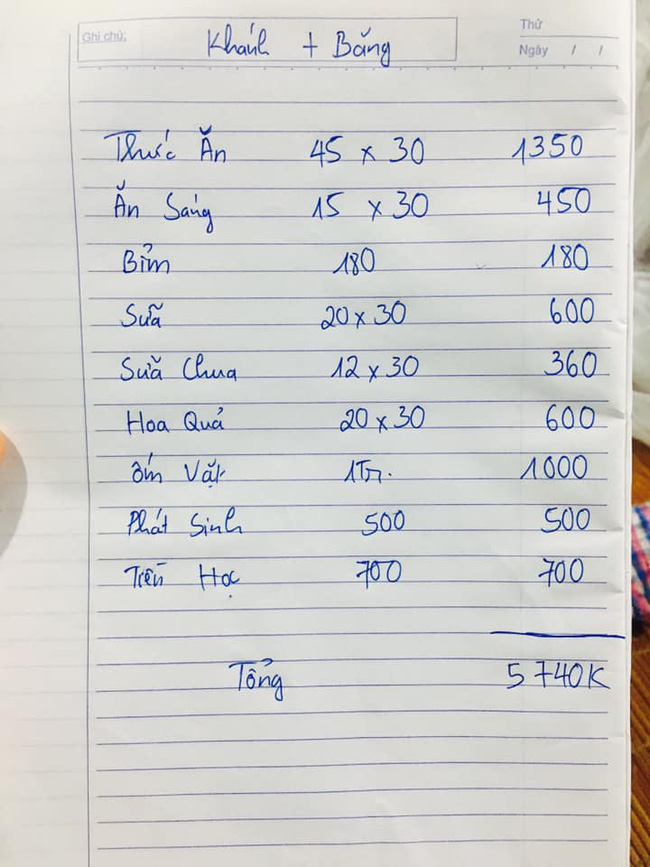 Ghi chú: Khánh + Băng
Thứ
Ngày / /
Thức Ăn 45 x 30 1350
Ăn Sáng 15 x 30 450
Bỉm 180 180
Sữa 20 x 30 600
Sữa Chua 12 x 30 360
Hoa Quả 20 x 30 600
ốm Vặt 1Tr. 1000
Phát Sinh 500 500
Tiền Học 700 700
Tổng 5740K